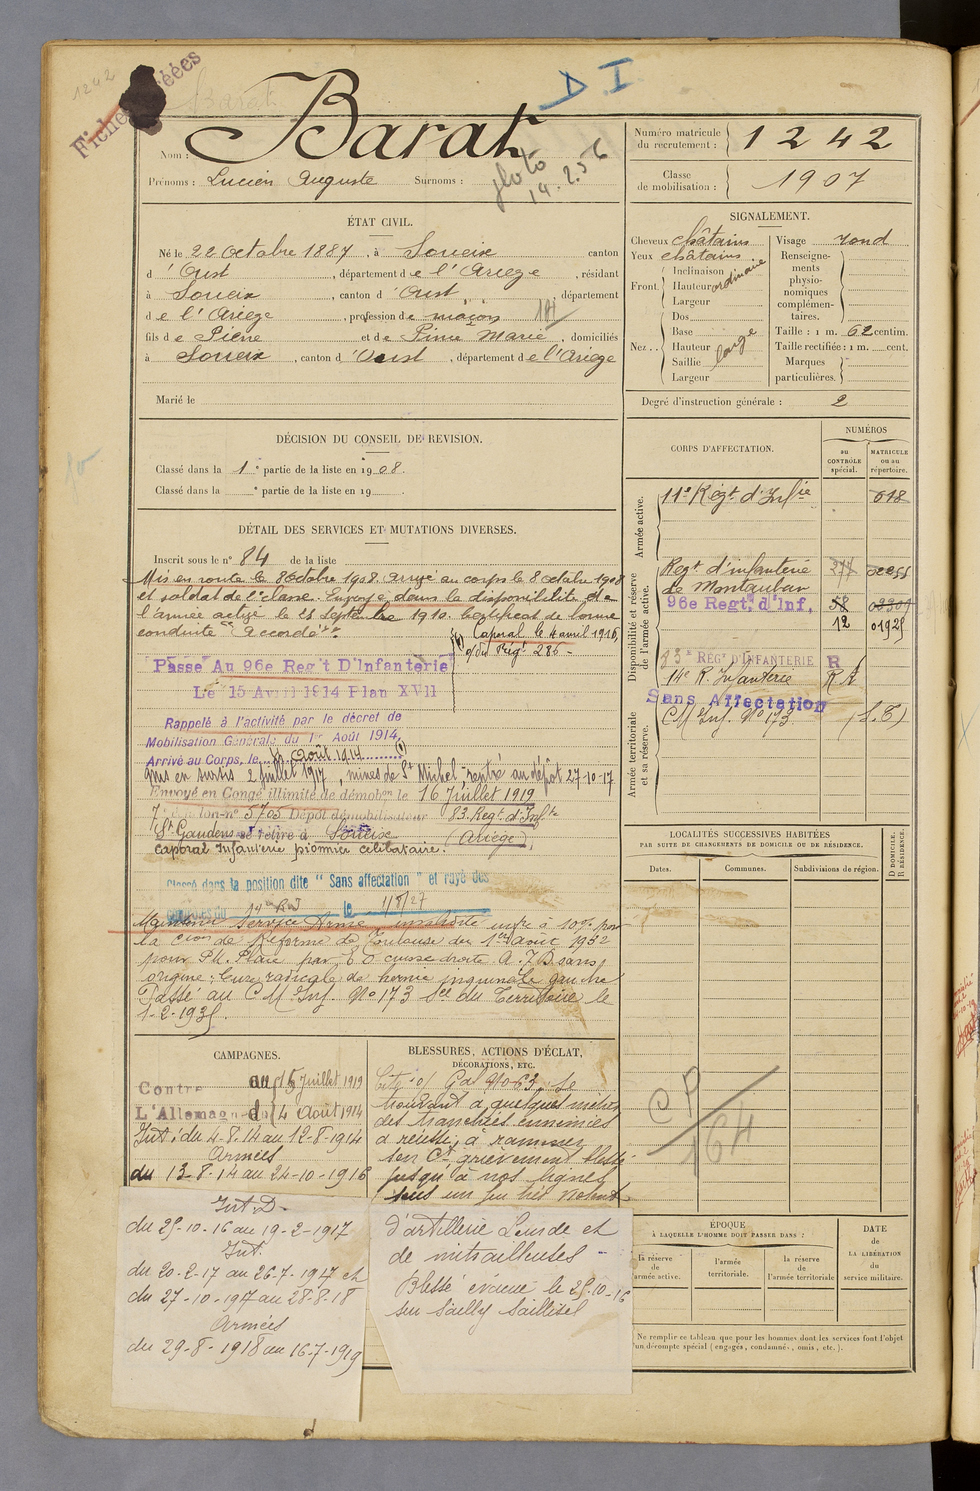 1242
D I
Nom : Barat
Prénoms : Lucien Auguste Surnoms :
photo
14.2.56
Numéro matricule du recrutement : 1242
Classe de mobilisation : 1907
ÉTAT CIVIL.
Né le 22 Octobre 1887, à Soueix canton
d'Oust, département de l'Ariège, résidant
à Soueix, canton d'Oust, département
de l'Ariège, profession de maçon
fils de Pierre et de Pince Marie, domiciliés
à Soueix, canton d'Oust, département de l'Ariège
Marié le
SIGNALEMENT.
Cheveux châtains
Yeux châtains
Front. Inclinaison
Hauteur ordinaire
Largeur
Nez .. Dos
Base
Hauteur large
Saillie
Largeur
Visage rond
Renseignements physionomiques complémentaires.
Taille : 1 m. 62 centim.
Taille rectifiée : 1 m. cent.
Marques particulières.
Degré d'instruction générale : 2
DÉCISION DU CONSEIL DE REVISION.
Classé dans la 1e partie de la liste en 1908.
Classé dans la e partie de la liste en 19 .
DÉTAIL DES SERVICES ET MUTATIONS DIVERSES.
Inscrit sous le n° 84 de la liste
Mis en route le 8 Octobre 1908. arrivé au corps le 8 octobre 1908
et soldat de 2e classe. Envoyé dans la disponibilité de
l'armée active le 25 septembre 1910. Certificat de bonne
conduite "Accordé".
Caporal le 4 avril 1916,
o/du Régt 286 -
Passé Au 96e Reg't D'Infanterie
Le 15 Avril 1914 Plan XVII
Rappelé à l'activité par le décret de
Mobilisation Générale du 1er Août 1914,
Arrivé au Corps, le 4 Août 1914
mis en sursis 2 juillet 1917, mines de St Michel - rentré au dépôt 27-10-17
Envoyé en Congé illimité de démobon le 16 Juillet 1919
7e échelon-n° 5705 Dépôt démobilisateur 83. Régt. d'Inf.te
St Gaudens se retire à Soueix (Ariège)
caporal Infanterie pionnier célibataire.
Classé dans la position dite "Sans affectation" et rayé des
le 1/5/27
Maintenu Service Armé, invalidité infre à 10% par
la Cion de Réforme de Toulouse du 1er Août 1932
pour Ph. Plaie par E O cuisse droite A. 7 B sans
origine : Cure radicale de hernie inguinale gauche
Passé au C M Inf. No 173 Son du Territoire le
1-2-193
CORPS D'AFFECTATION.
NUMÉROS
au CONTRÔLE spécial.
MATRICULE ou au répertoire.
Armée active.
11e Régt d'Infie 018
Disponibilité et réserve de l'armée active.
Regt d'infanterie de Montauban
96e Regt. d'Inf. 58
12 0192
83e RÉGt D'INFANTERIE R
14e R. Infanterie R A
Sans Affectation
Armée territoriale et sa réserve.
C M Inf. No 173 (S.T)
LOCALITÉS SUCCESSIVES HABITÉES
PAR SUITE DE CHANGEMENTS DE DOMICILE OU DE RÉSIDENCE.
Dates.
Communes.
Subdivisions de région.
D DOMICILE. R RÉSIDENCE.
CP
164
CAMPAGNES.
Contre au 15 Juillet 1919
L'Allemagne du 4 Août 1914
Int : du 4-8-14 au 12-8-1914
Armées
du 13-8-14 au 24-10-1916
Int. D.
du 25-10-16 au 19-2-1917
Int.
du 20-2-17 au 26-7-1917 et
du 27-10-1917 au 28-8-18
Armées
du 29-8-1918 au 16-7-1919
BLESSURES, ACTIONS D'ÉCLAT,
DÉCORATIONS, ETC.
Cité o/ Gal No 63. Se
trouvant à quelques mètres
des tranchées ennemies
a réussi à ramener
son Ct grièvement blessé
jusqu'à nos lignes
sous un feu très violent
d'artillerie lourde et
de mitrailleuses -
Blessé évacué le 25-10-16
sur Sailly Saillisel
ÉPOQUE
À LAQUELLE L'HOMME DOIT PASSER DANS :
la réserve de l'armée active.
l'armée territoriale.
la réserve de l'armée territoriale
DATE de LA LIBÉRATION du service militaire.
Ne remplir ce tableau que pour les hommes dont les services font l'objet
d'un décompte spécial (engagés, condamnés, omis, etc.).